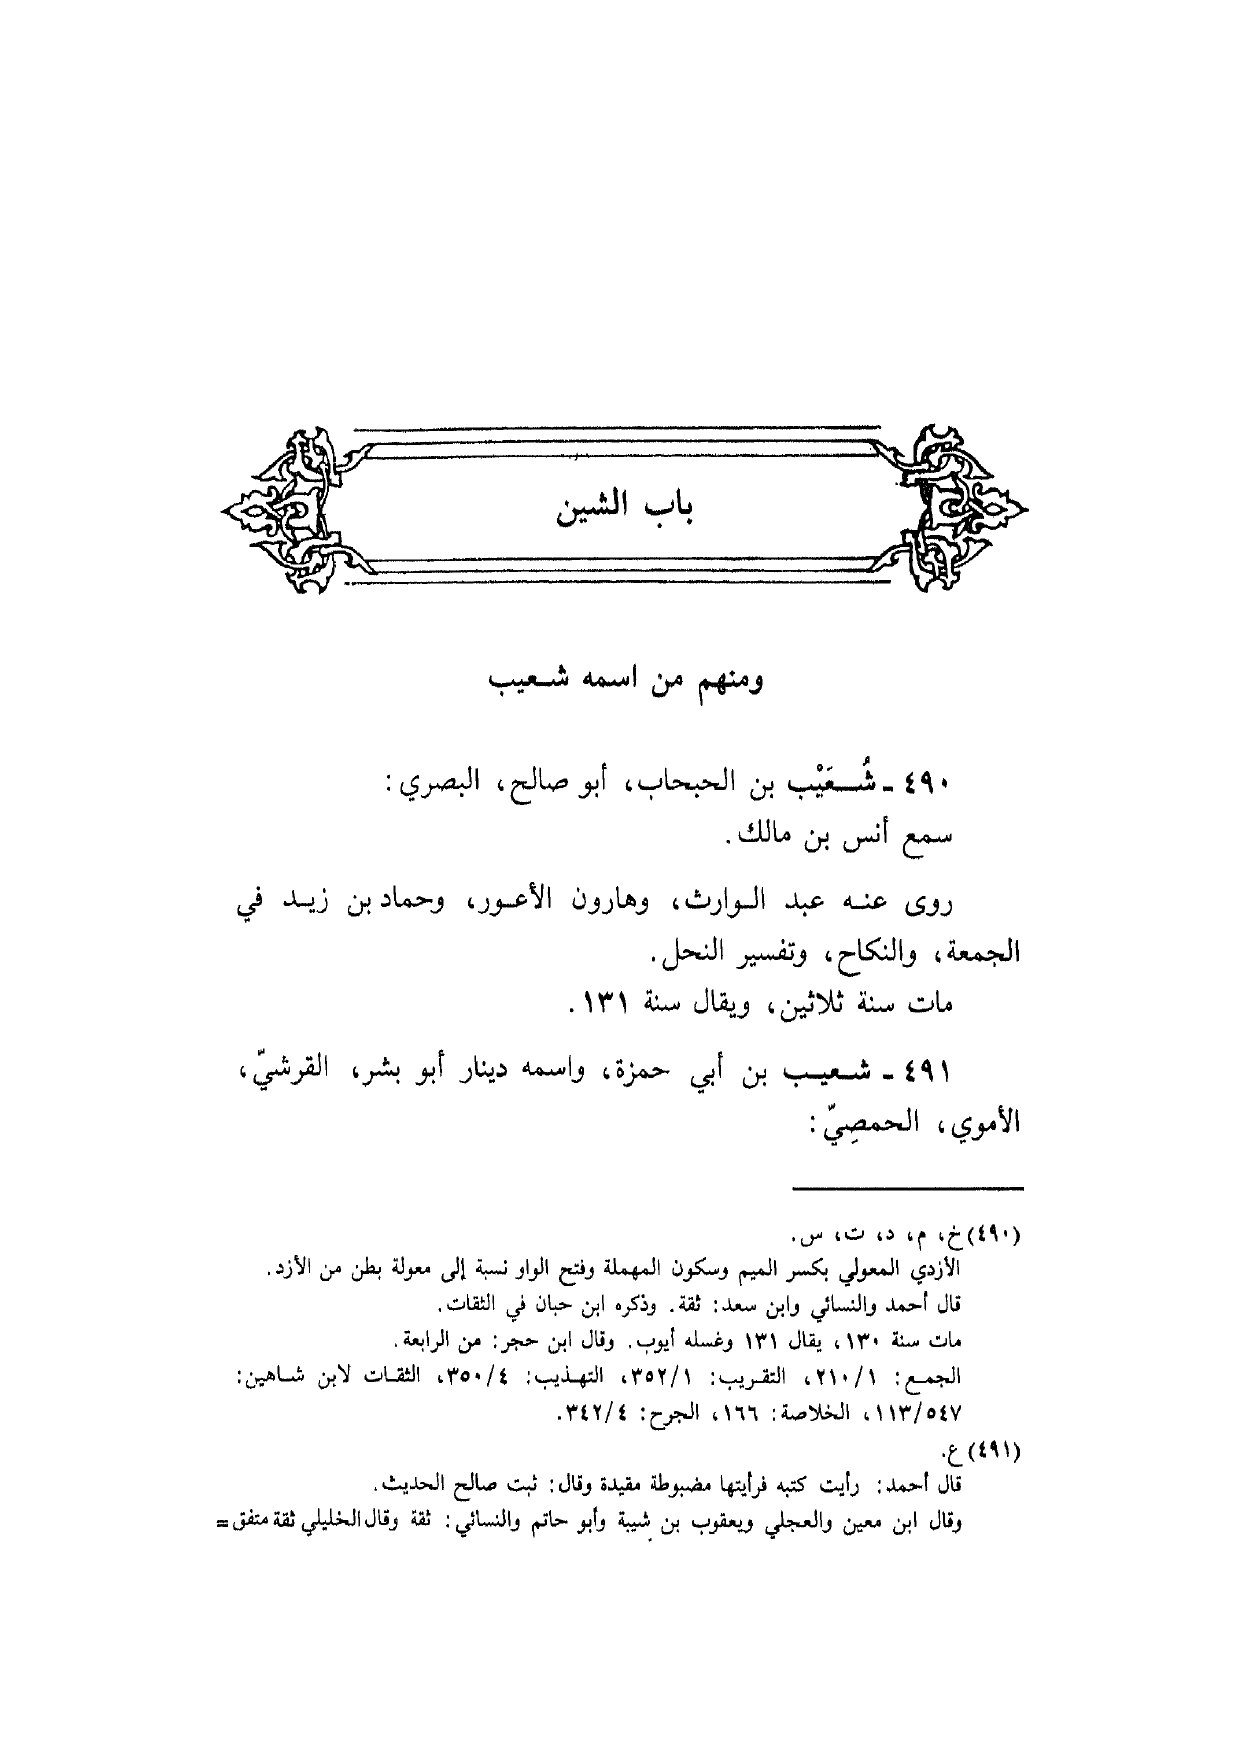 باب الشين
ومنهم من اسمه شـعيب
٤٩٠ ـ شُـعَيْب بن الحبحاب، أبو صالح، البصري:
سمع أنس بن مالك.
روى عنـه عبد الـوارث، وهارون الأعـور، وحماد بن زيـد في
الجمعة، والنكاح، وتفسير النحل.
مات سنة ثلاثين، ويقال سنة ١٣١.
٤٩١ ـ شـعيـب بن أبي حمزة، واسمه دينار أبو بشر، القرشيّ،
الأموي، الحمصِيّ:
(٤٩٠) خ، م، د، ت، س.
الأزدي المعولي بكسر الميم وسكون المهملة وفتح الواو نسبة إلى معولة بطن من الأزد.
قال أحمد والنسائي وابن سعد: ثقة. وذكره ابن حبان في الثقات.
مات سنة ١٣٠، يقال ١٣١ وغسله أيوب. وقال ابن حجر: من الرابعة.
الجمـع: ٢١٠/١، التقـريب: ٣٥٢/١، التهـذيب: ٣٥٠/٤، الثقـات لابن شـاهين:
١١٣/٥٤٧، الخلاصة: ١٦٦، الجرح: ٣٤٢/٤.
(٤٩١) ع.
قال أحمد: رأيت كتبه فرأيتها مضبوطة مقيدة وقال: ثبت صالح الحديث.
وقال ابن معين والعجلي ويعقوب بن شيبة وأبو حاتم والنسائي: ثقة وقال الخليلي ثقة متفق =